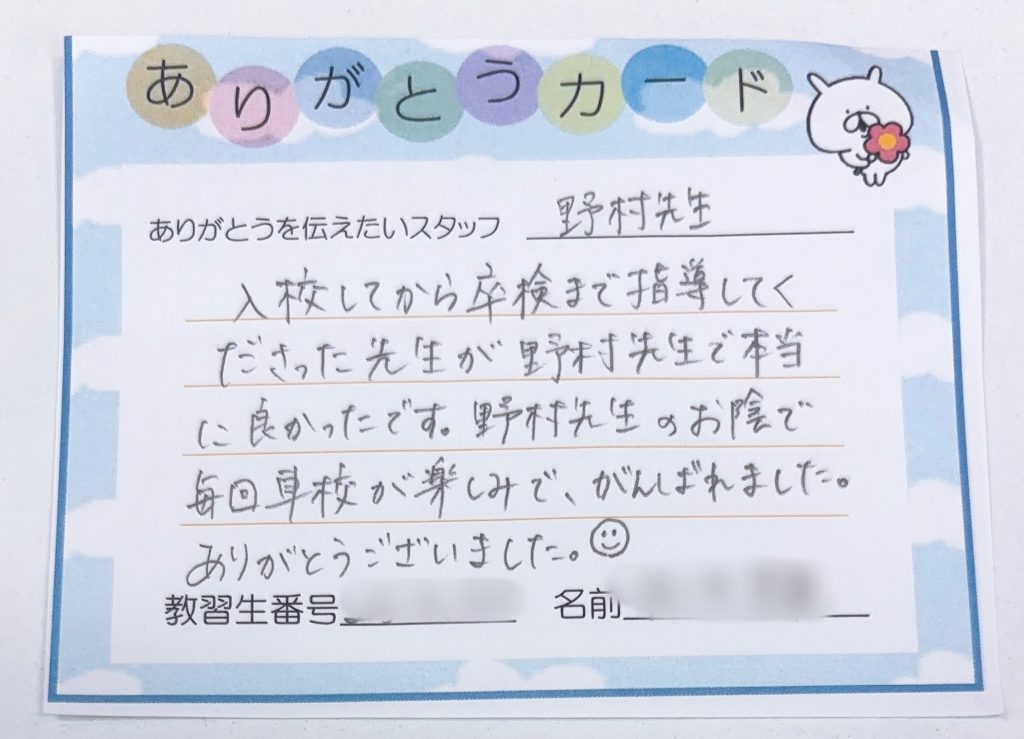 ありがとうカード
ありがとうを伝えたいスタッフ 野村先生
入校してから卒検まで指導してく
ださった先生が野村先生で本当
に良かったです。野村先生のお陰で
毎回車校が楽しみで、がんばれました。
ありがとうございました。
教習生番号
名前